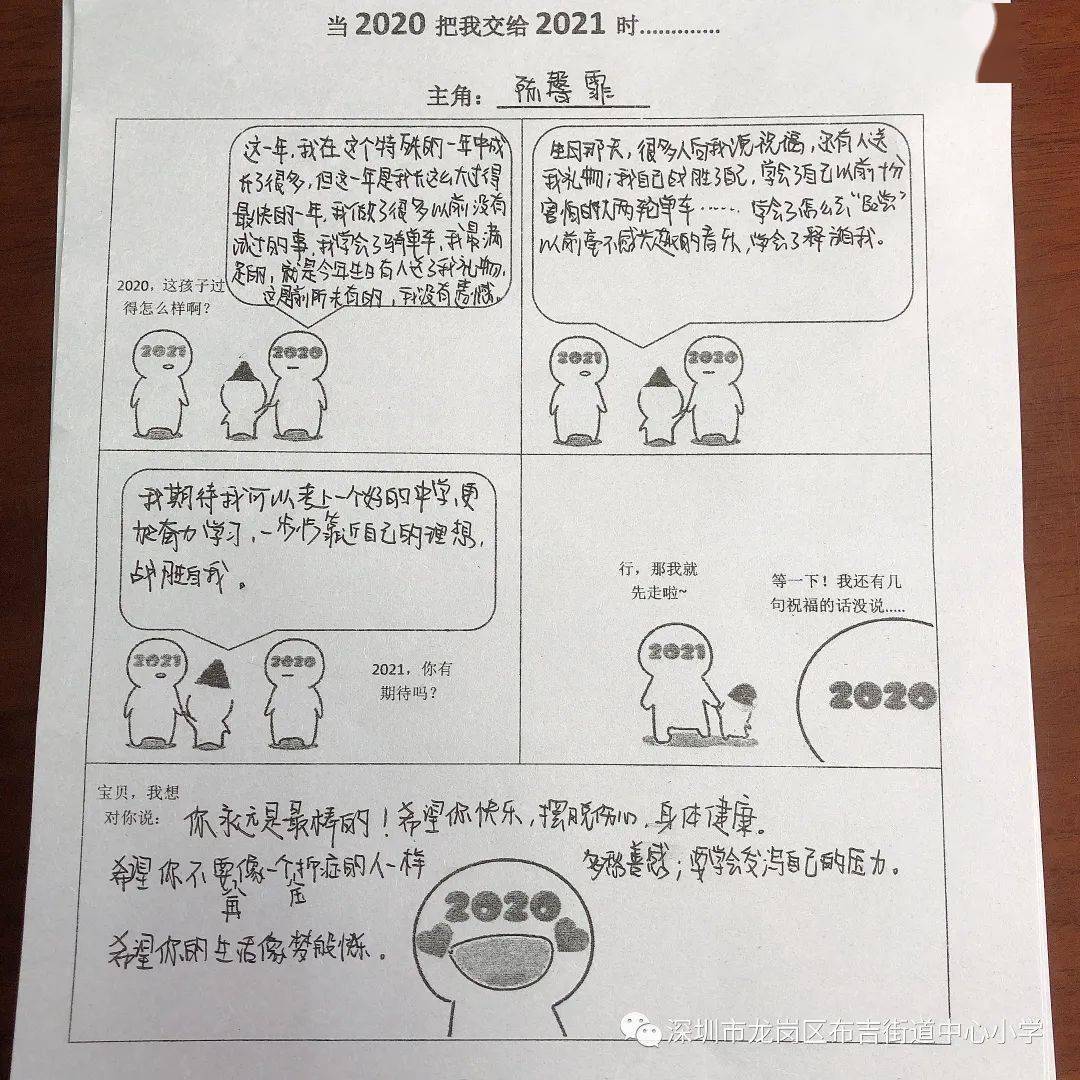 当 2020 把我交给 2021 时.............
主角： 陈馨霏
这一年，我在这个特殊的一年中成
长了很多，但这一年是我长这么大过得
最快的一年，我做了很多以前没有
试过的事，我学会了骑单车，我最满
足的，就是今年生日有人送了我礼物，
这是前所未有的，我没有遗憾。
2020，这孩子过
得怎么样啊？
2021
2020
生日那天，很多人向我说祝福，还有人送
我礼物；我自己战胜了自己，学会了自己以前十分
害怕的大两轮单车……学会了怎么去“
以前毫不感兴趣的音乐，学会了释自我。
2021
2020
我期待我可以考上一个好的中学，更
加奋力学习，一步步靠近自己的理想，
战胜自我。
2021
2020
2021，你有
期待吗？
行，那我就
先走啦~
等一下！我还有几
句祝福的话没说.....
2021
2020
宝贝，我想
对你说：
你永远是最棒的！希望你快乐，摆脱伤心，身体健康。
希望你不要像一个症的人一样
再
多愁善感；要学会发泻自己的压力。
希望你的生活像梦般
2020
深圳市龙岗区布吉街道中心小学